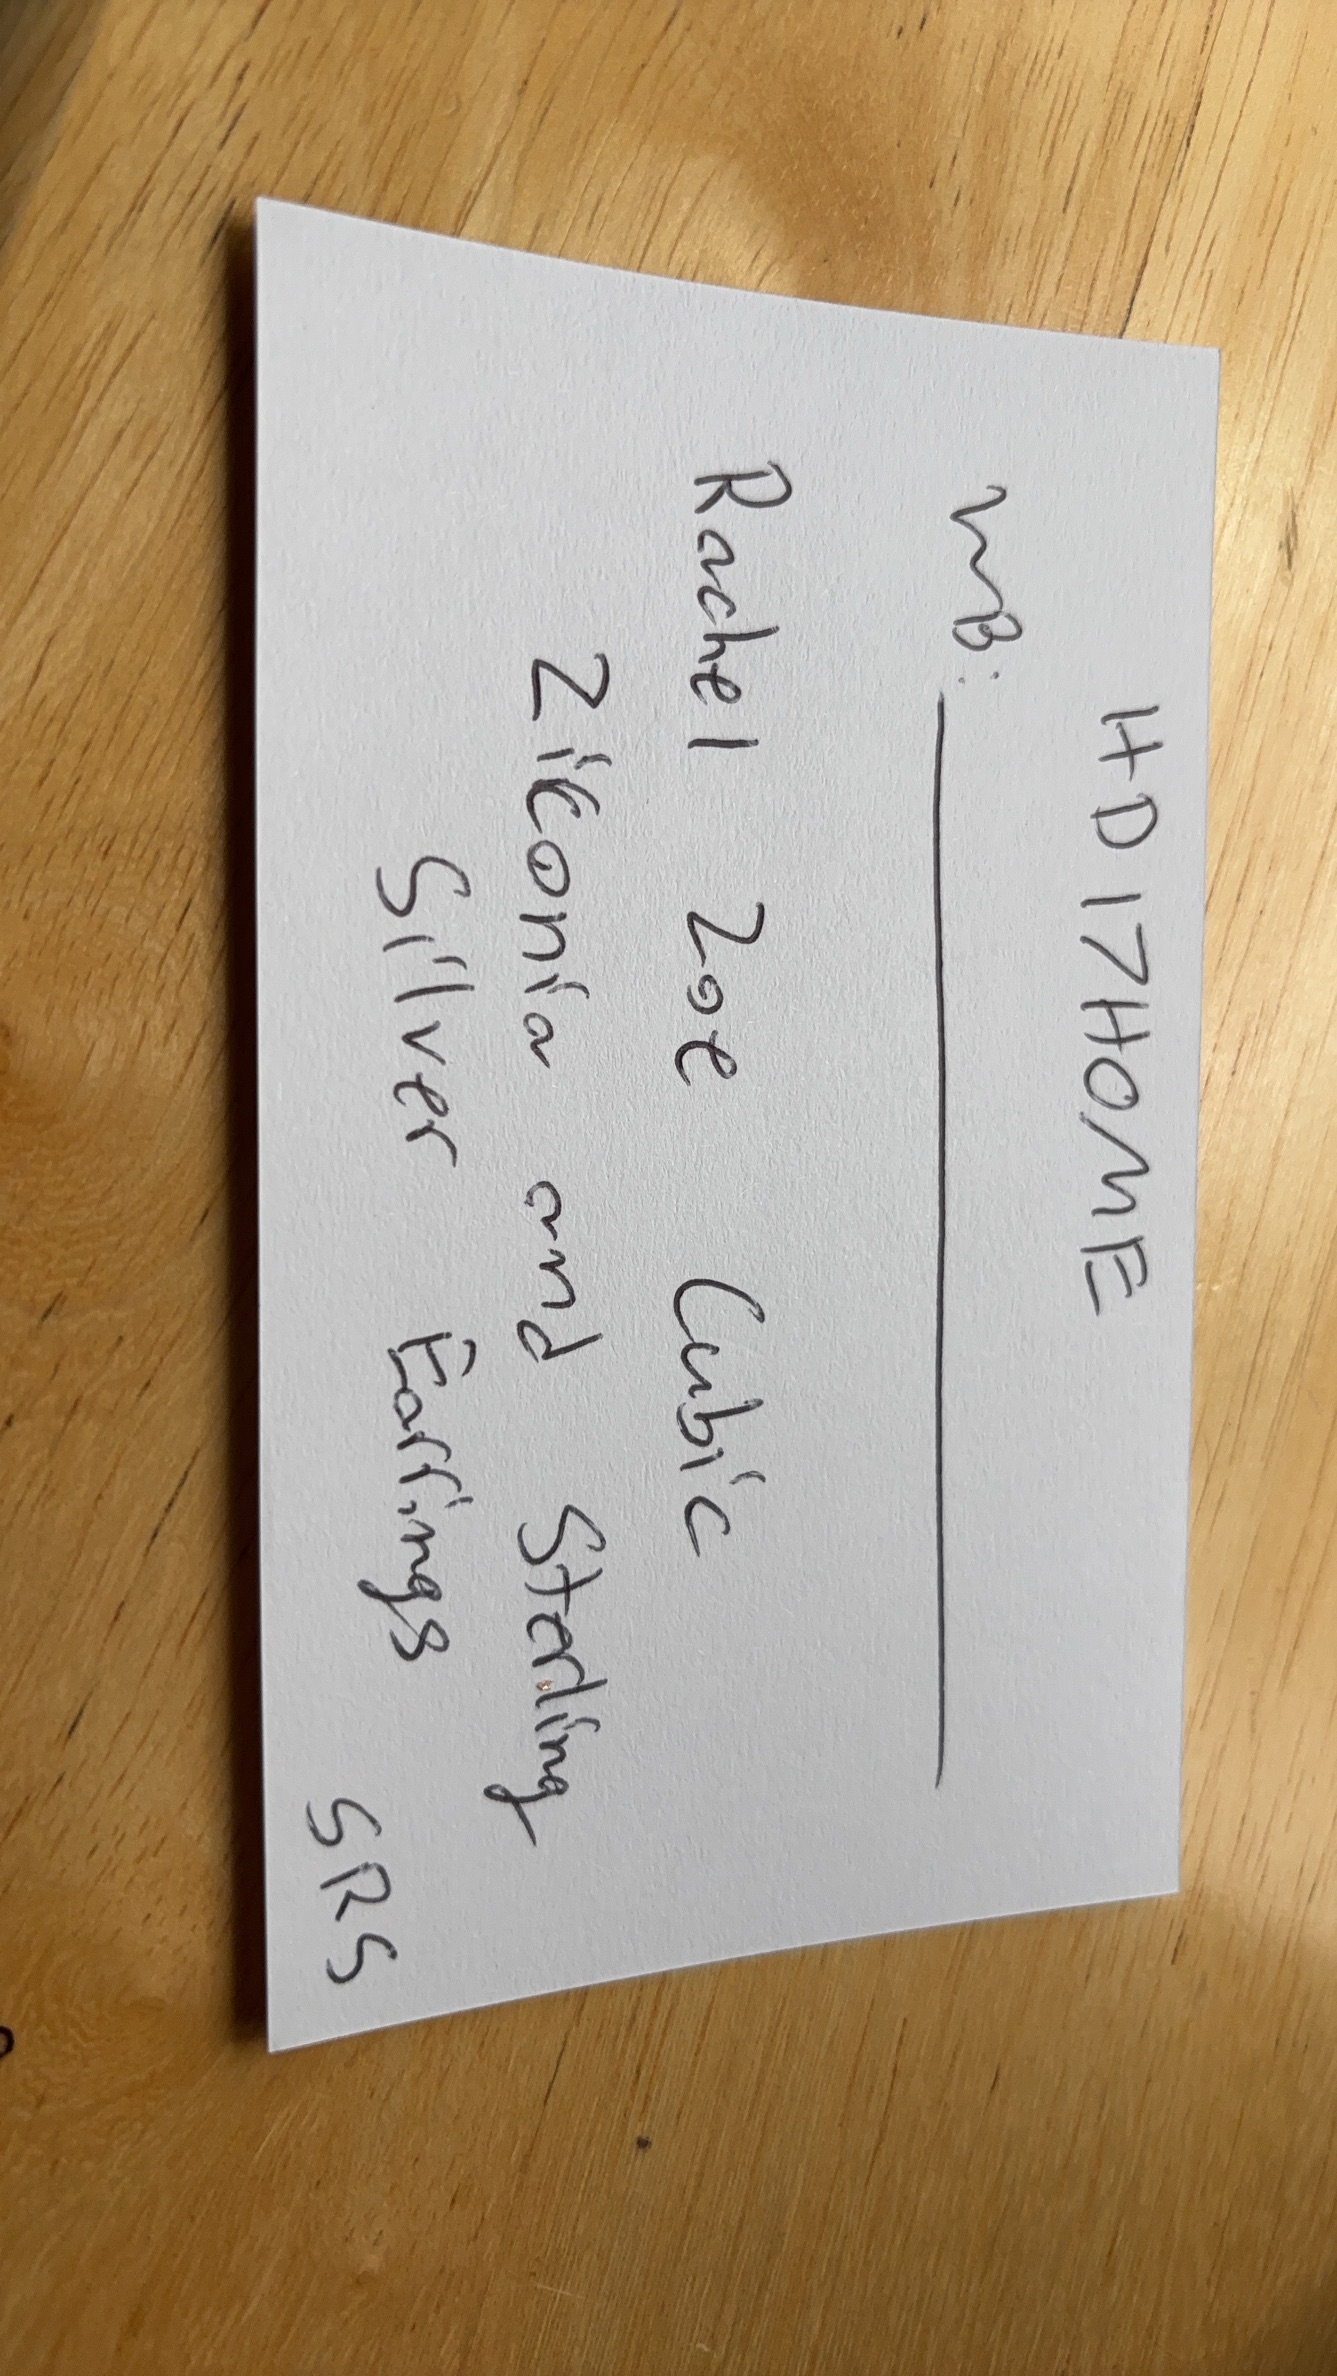 HD17HOME
MB:
Rachel Zoe Cubic
Zirconia and Sterling
Silver Earrings
SRS